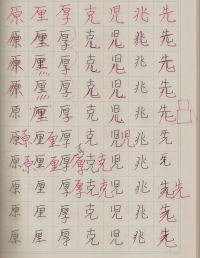 原厘厚克児兆先
原厘厚克児兆先
原厘厚克児兆先
原厘厚克児兆先
原厘厚克児兆先
原原厘厘厚克児児兆先
原原厘厘厚厚克克児兆先
原厘厚厚克克児兆先先
原厘厚克児兆先
原厘厚克児兆先